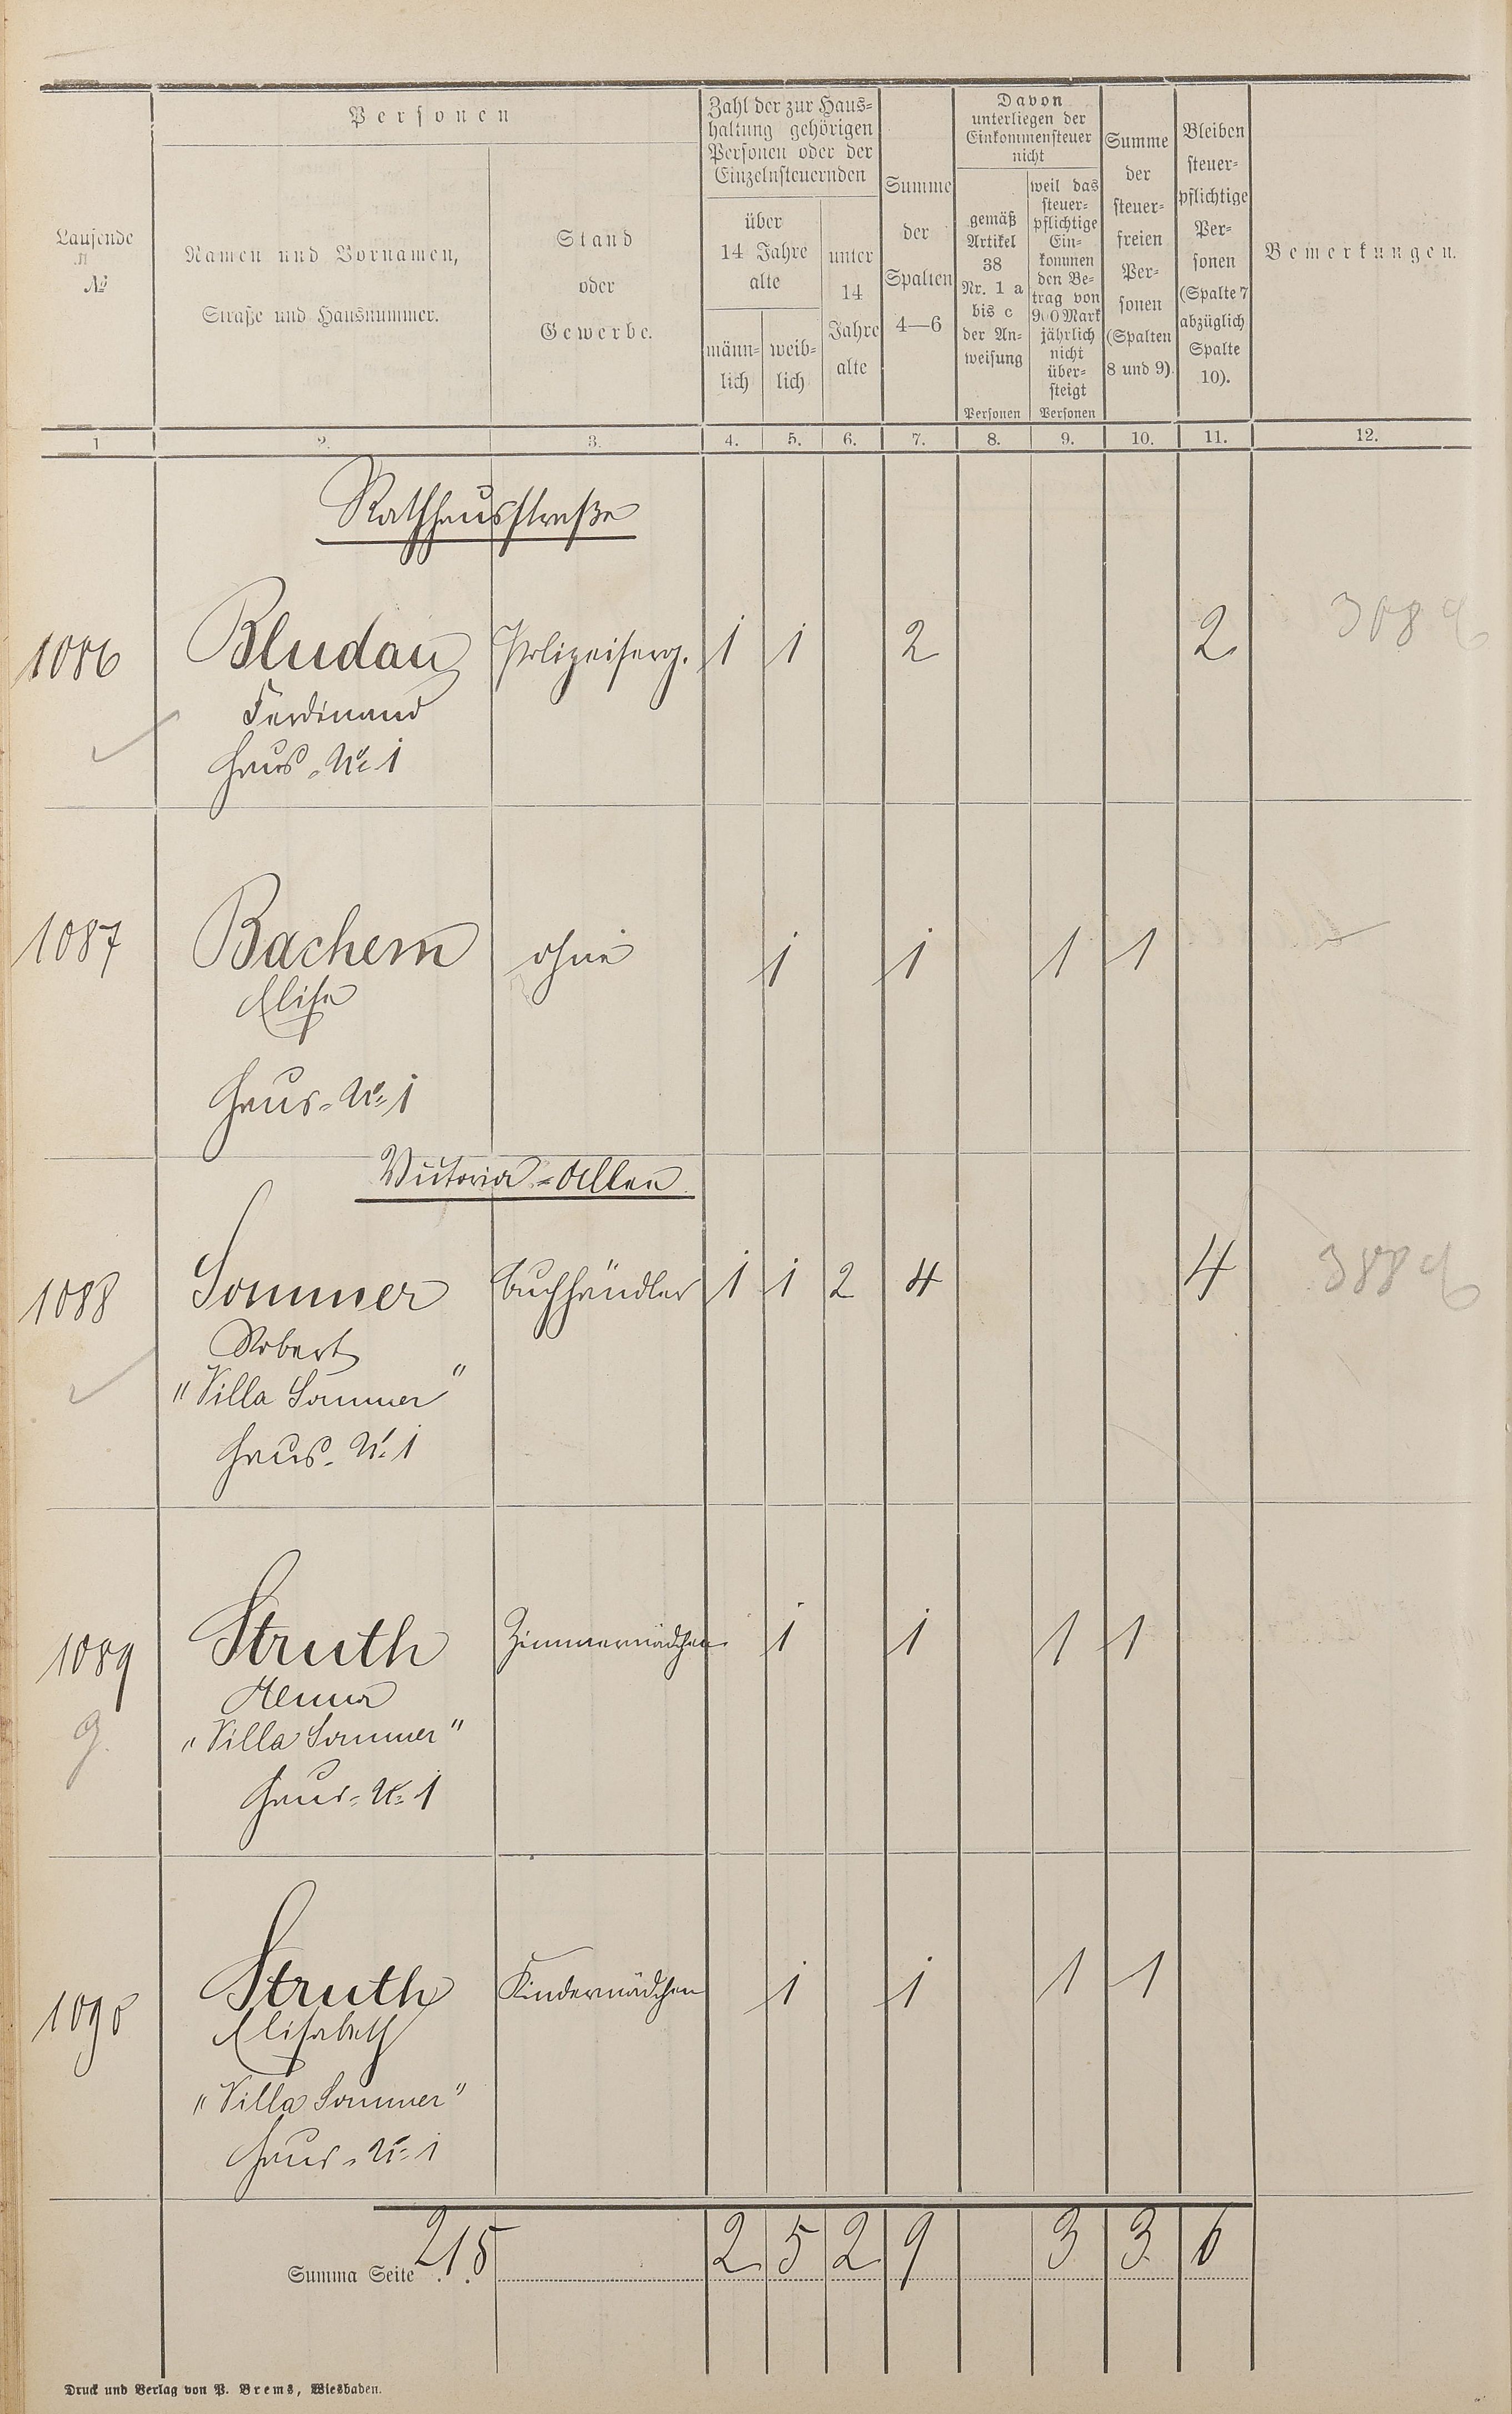 Personen
Laufende
№
Namen und Vornamen,
Straße und Hausnummer.
Stand
oder
Gewerbe.
Zahl der zur Haus-
haltung gehörigen
Personen oder der
Einzelnsteuernden
über
14 Jahre
alte
männ-
lich
weib-
lich
unter
14
Jahre
alte
Summe
der
Spalten
4—6
Davon
unterliegen der
Einkommensteuer
nicht
gemäß
Artikel
38
Nr. 1 a
bis c
der An-
weisung
Personen
weil das
steuer-
pflichtige
Ein-
kommen
den Be-
trag von
900 Mark
jährlich
nicht
über-
steigt
Personen
Summe
der
steuer-
freien
Per-
sonen
(Spalten
8 und 9).
Bleiben
steuer-
pflichtige
Per-
sonen
(Spalte 7
abzüglich
Spalte
10).
Bemerkungen.
1 2. 3. 4. 5. 6. 7. 8. 9. 10. 11. 12.
Rathhausstraße
1086 Bludau Polizeiserg. 1 1 2 2
Ferdinand
Haus-No 1
1087 Bachem ohne 1 1 1 1
Elise
Haus-No 1
Victoria-Allee
1088 Sommer Buchhändler 1 1 2 4 4 388
Robert
"Villa Sommer"
Haus-No 1
1089 Struth Zimmermädchen 1 1 1 1
"Villa Sommer"
Haus-No 1
1090 Struth Kindermädchen 1 1 1 1
Elisabeth
"Villa Sommer"
Haus-No 1
Summa Seite 215 2 5 2 9 3 3 6
Druck und Verlag von P. Brems, Wiesbaden.